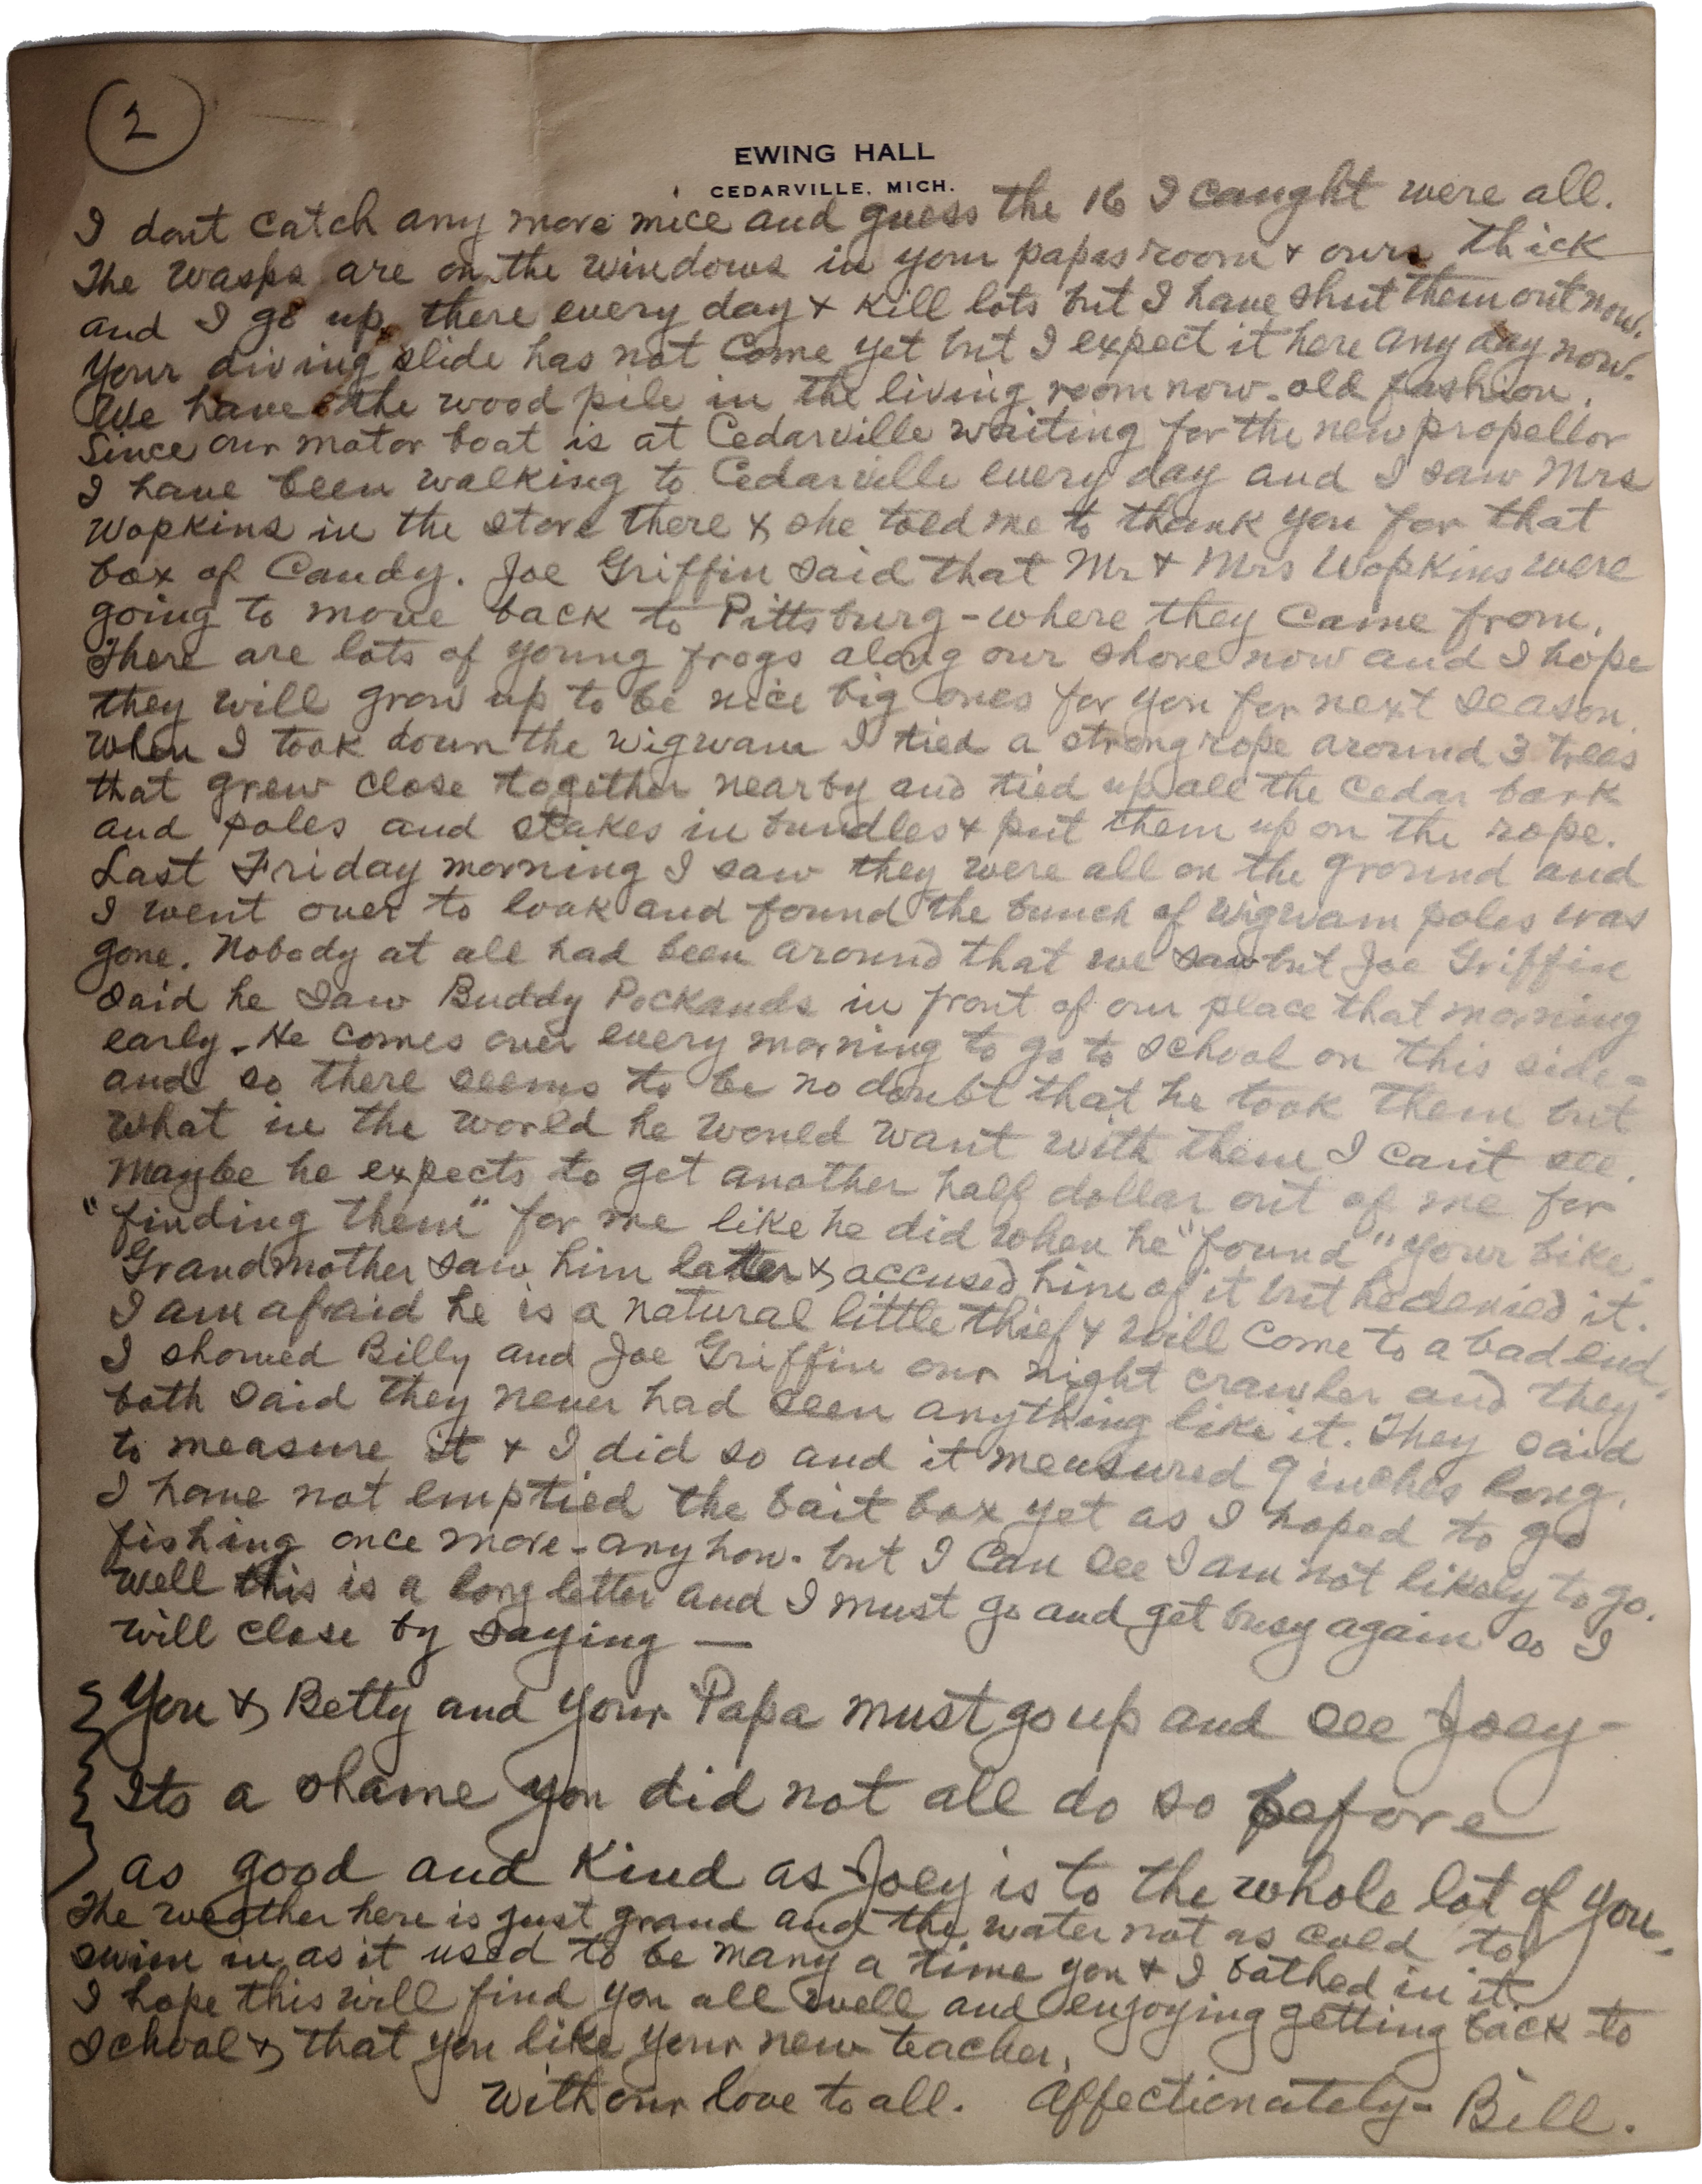 2
EWING HALL
CEDARVILLE, MICH.
I dont catch any more mice and guess the 16 I caught were all.
The wasps are on the windows in your papas room & ours thick
and I go up there every day & kill lots but I have shut them out now.
Your diving slide has not come yet but I expect it here any day now.
We have the wood pile in the living room now - old fashion.
Since our motor boat is at Cedarville waiting for the new propellor
I have been walking to Cedarville every day and I saw Mrs
Wopkins in the store there & she told me to thank you for that
box of Candy. Joe Griffin said that Mr & Mrs Wopkins were
going to move back to Pittsburg - where they came from.
There are lots of young frogs along our shore now and I hope
they will grow up to be nice big ones for you for next season.
When I took down the wigwam I tied a strong rope around 3 trees
that grew close together nearby and tied up all the cedar bark
and poles and stakes in bundles & put them up on the rope.
Last Friday morning I saw they were all on the ground and
I went over to look and found the bunch of wigwam poles was
gone. Nobody at all had been around that we saw but Joe Griffin
said he saw Buddy in front of our place that morning
early. He comes over every morning to go to school on this side -
and so there seems to be no doubt that he took them but
what in the world he would want with them I can't see.
Maybe he expects to get another half dollar out of me for
"finding them" for me like he did when he "found" your bike.
Grandmother saw him later & accused him of it but he denied it.
I am afraid he is a natural little thief & will come to a bad end.
I showed Billy and Joe Griffin our night crawler and they
both said they never had seen anything like it. They said
to measure it & I did so and it measured 9 inches long.
I have not emptied the bait box yet as I hoped to go
fishing once more - anyhow - but I can see I am not likely to go.
Well this is a long letter and I must go and get busy again so I
will close by saying —
You & Betty and your Papa must go up and see Joey -
Its a shame you did not all do so before
as good and kind as Joey is to the whole lot of you.
The weather here is just grand and the water not as cold to
swim in as it used to be many a time you & I bathed in it.
I hope this will find you all well and enjoying getting back to
School & that you like your new teacher.
With our love to all. Affectionately - Bill.